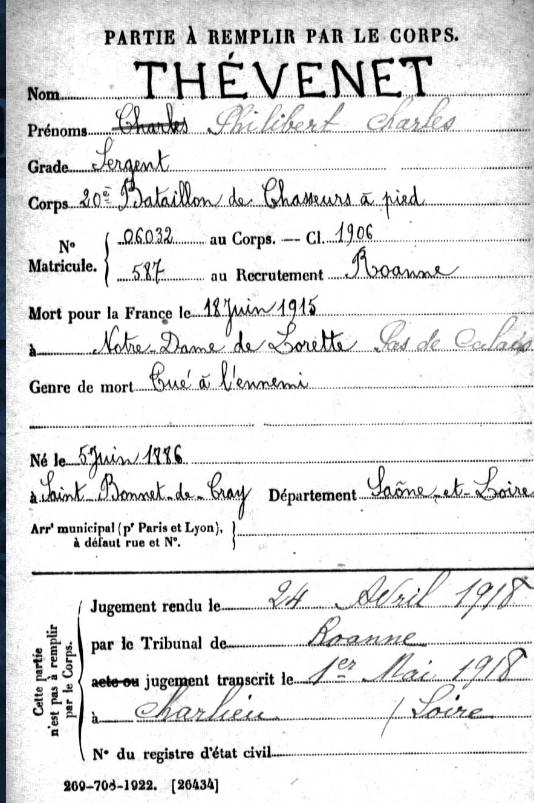 PARTIE À REMPLIR PAR LE CORPS.
Nom THÉVENET
Prénoms Charles Philibert Charles
Grade Sergent
Corps 20e Bataillon de Chasseurs à pied
N° Matricule. 06032 au Corps. — Cl. 1906
587 au Recrutement Roanne
Mort pour la France le 18 Juin 1915
à Notre-Dame de Lorette Pas de Calais
Genre de mort Tué à l'ennemi
Né le 5 Juin 1886
à Saint Bonnet-de-Cray Département Saône-et-Loire
Arrt municipal (pr Paris et Lyon),
à défaut rue et N°.
Cette partie n'est pas à remplir par le Corps.
Jugement rendu le 24 Avril 1918
par le Tribunal de Roanne
acte ou jugement transcrit le 1er Mai 1918
à Charlieu / Loire
N° du registre d'état civil
269-708-1922. [26434]